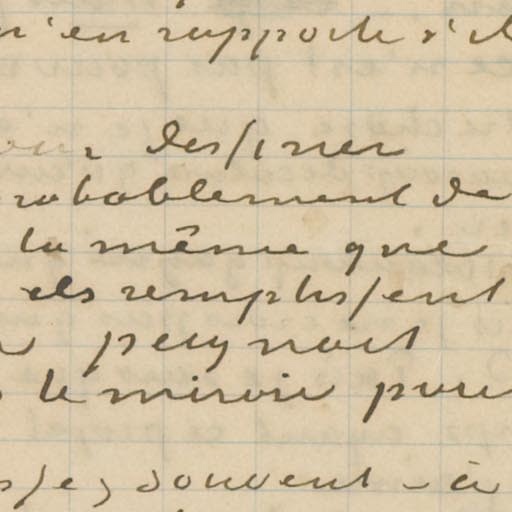 n'en rapporte s'il
pour dessiner
probablement de
la même que
ils remplissent
peignait
le miroir pour
souvent - à